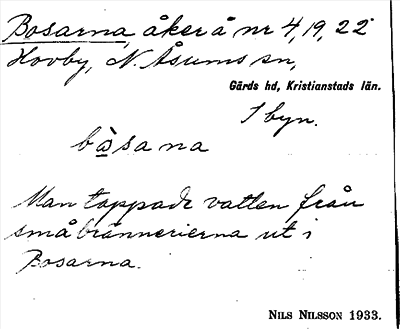 Bosarna, åker å nr 4, 19, 22
Hovby, N. Åsums sn,
Gärds hd, Kristianstads län.
I byn.
bòsana
Man tappade vatten från
små brännerierna ut i
Bosarna.
NILS NILSSON 1933.